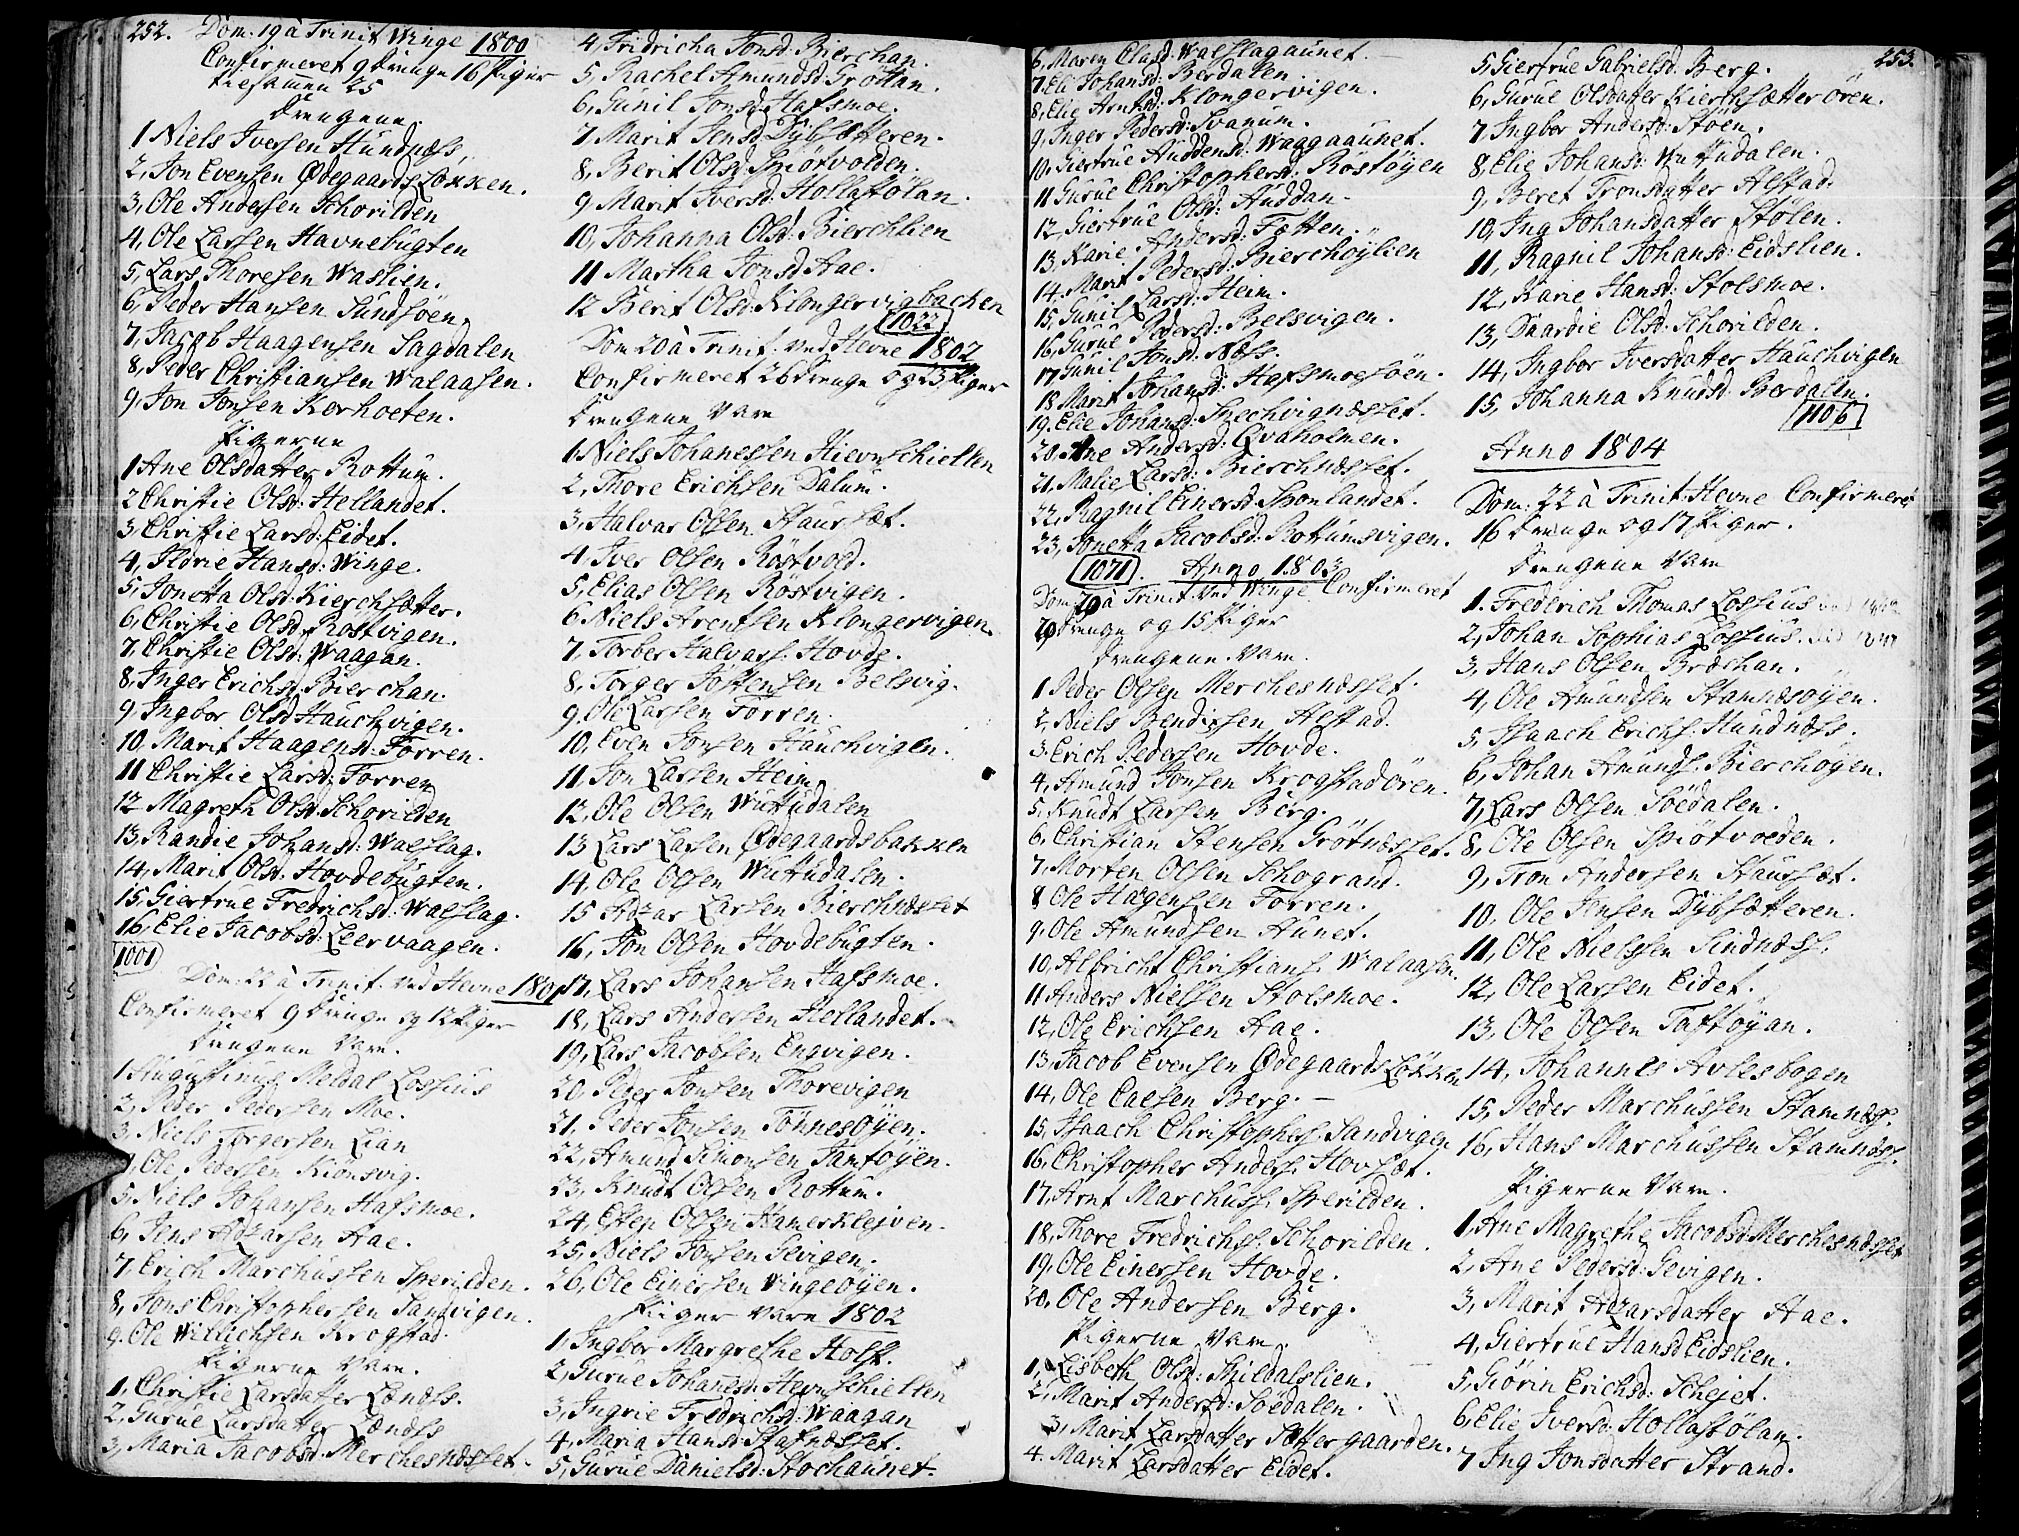 252. Dom: 19 à Trinit Winge 1800
Confirmeret 9 drenge 16 Piger
tilsammen 25
Drengene.
1 Niels Iversen Hundnæs,
2, Jon Evensen Ødegaards Løkken.
3, Ole Andersen Schorilden
4, Ole Larsen Havnebugten
5, Lars Thoresen Waslien.
6, Peder Hansen Sundsøen,
7, Jacob Haagensen Sagdalen
8, Peder Christiansen Walaasen.
9, Jon Jonsen Korhoeten.
Pigerne
1 Ane Olsdatter Rottum.
2 Christie Olsd: Hellandet.
3 Christie Larsd: Eidet.
4, Hans d: Winge.
5, Jonetta Olsd: Kierchsætter.
6, Christie Olsd: Røstvigen.
7, Christie Olsd: Waagan.
8, Inger Erichsd: Bierchan.
9, Ingbor Olsd Hauchvigen.
10, Marit Haagensd: Forren.
11 Christie Larsd: Forren
12 Magreth Olsd: Schorilden
13, Randie Johansd: Waeslag.
14, Marit Olsd: Hovdebugten.
15, Giertrue Fredrichsd: Waeslag.
16, Elie Jacobsd: Leervaagen.
1001
Dom: 22 à Trinit. ved Hevne 1801
Confirmeret 9 Drenge og 12 Piger
Drengene Vare.
1 Augustinus Meldal Lossius
2, Peder Pedersen Moe.
3, Niels Torgersen Lian
4, Ole Pedersen Kiønsvig.
5, Niels Johansen Hafsmoe.
6, Jens Adzarsen Aae.
7, Erich Marchussen Sperilden.
8, Jons Christophersen Sandvigen.
9. Ole Willichsen Krogstad.
Pigerne Vare.
1, Christie Larsdatter Lændss.
2, Gurue Larsdatter Lændss
3, Maria Jacobsd: Merchesnæsset.
4, Fridricha Jonsd: Bierchan.
5, Rachel Amundsd: Grøttan.
6, Gunil Jonsd: Hafsmoe.
7, Marit Jensd: Dybsætteren.
8, Berit Olsd: Spiøtvolden.
9 Marit Iversd: Hollasolan.
10, Johanna Olsd: Bierchlien
11 Martha Jonsd Aae.
12 Berit Olsd: Klongervigbachen
1022
Dom 20 à Trinit. ved Hevne 1802
Confirmeret 26 drenge og 23 Piger
Drengene Vare
1. Niels Johanessen Hievnschiellen
2, Thore Erichsen Dalum.
3, Halvar Olsen Staursæt.
4, Iver Olsen Røstvold.
5, Elias Olsen Røstvigen.
6 Niels Arentsen Klongervigen.
7, Torber Halvars: Hovde.
8, Torger Jostensen Belsvig.
9, Ole Larsen Forren.
10, Even Jonsen Hauchvigen.
11, Jon Larsen Heim
12, Ole Olsen Wuttudalen
13 Lars Larsen Ødegaardsbakken
14, Ole Olsen Wuttudalen.
15 Adzar Larsen Bierchnæsset
16, Jon Olsen Hovdebugten.
17, Lars Johansen Hafsmoe.
18, Lars Andersen Hellandet.
19, Lars Jacobsen Engvigen.
20, Peder Jonsen Thorevigen
21, Peder Jonsen Tønnesøyen.
22, Amund Simonsen Tamtøyen.
23, Knudt Olsen Rottum.
24, Esten Olsen Hanesklejven.
25, Niels Jonsen Sevigen.
26, Ole Einersen Wingeøyen.
Piger vare 1802
1. Ingbor Margrethe Holst.
2, Gurue Johanesd: Hevnschiellen
3, Ingrie Fredrichsd: Waagan
4, Maria Hansd: Stafnæsset.
5, Gurue Danielsd: Stochaunet.
6. Maren Clasd: Waeslagaunet.
7, Eli Johansd: Bordalen.
8, Elie Arntsd: Klongervigen.
9, Inger Pedersd: Svanum.
10. Giertrue Auddensd: Waagaaunet.
11 Gurue Christophersd: Rostøyen
12, Giertrue Olsd: Auddan.
13, Karie Andersd: Fætten.
14. Marit Pedersd: Bierchøylien
15, Gunil Larsd: Heim.
16, Gurue Pedersd: Belsvigen.
17 Gunil Jonsd: Næss.
18 Marit Johansd: Hafsmoesøen.
19. Elie Johansd: Snechvignæsset.
20. Ane Andersd: Qvaholmen.
21, Malie Larsd: Bierchnæsset.
22, Ragnil Einersd: Sponlandet.
23, Jonetta Jacobsd: Rottumsvigen.
1071. Anno 1803
Dom: 19 à Trinit: ved Winge Confirmeret
20 Drenge og 15 Piger
Drengene Vare.
1 Peder Olsen Merchesnæsset.
2, Niels Bendixsen Aestad.
3. Erich Pedersen Hovde.
4, Amund Jonsen Krogstadøren.
5, Knudt Larsen Berg.
6, Christian Stensen Grøtnæsset.
7, Morten Olsen Schogrand.
8 Ole Hagensen Forren.
9, Ole Amundsen Aunet.
10, Albricht Christians: Walaasen.
11 Anders Nielsen Stolsmoe.
12, Ole Erichsen Aae.
13, Jacob Evensen Ødegaards Løkken
14, Ole Larsen Berg.
15, Isaach Christophers: Sandvigen
16, Christopher Anders: Hovsæt.
17, Arnt Marchuss: Sperilden.
18, Thore Fredrichs: Schorilden.
19, Ole Einersen Hovde.
20. Ole Andersen Berg.
Pigerne Vare.
1, Lisbeth Olsd: Skildalslien.
2, Marit Andersd: Søedalen.
3, Marit Larsdatter Sættergaarden.
4. Marit Larsdatter Eidet.
253.
5, Giertrue Gabrielsd: Berg.
6, Gurue Olsdatter Kierchsætterøren.
7, Ingbor Andersd: Støen.
8, Elie Johansd: Wuttudalen.
9, Beret Tronsdatter Aestad.
10, Ing Johansdatter Stølen.
11, Ragnil Johansd: Eidslien.
12, Karie Hansd: Stolsmoe.
13, Daardie Olsd: Schorilden.
14, Ingbor Iversdatter Hauchvigen
15, Johanna Knudsd: Bordalen.
1106
Anno 1804
Dom: 22 à Trinit: Hevne Confirmeret
16 drenge og 17 Piger.
Drengene Vare
1. Frederich Thomas Lossius
2, Johan Sophias Lossius.
3, Hans Olsen Brechan.
4, Ole Amundsen Stamnæsøyen.
5, Isaach Erichs: Hundnæss.
6, Johan Amunds: Bierchøyen.
7, Lars Olsen Søedalen.
8, Ole Olsen Spiøtvoeden.
9, Tron Andersen Staursæt.
10. Ole Jensen Dybsætteren.
11, Ole Nielssen Sindnæss.
12, Ole Larsen Eidet.
13, Ole Olsen Taftøyan.
14, Johannes Avlesbogen
15, Peder Marchussen Stamnæss.
16, Hans Marchussen Stamnæss.
Pigerne Vare.
1, Ane Magrethe Jacobsd: Merchesnæsset
2, Ane Pedersd: Sevigen.
3, Marit Adzarsdatter Aae.
4, Giertrue Hansd Eidslien.
5, Giørin Erichsd: Schejet.
6, Elie Iversd: Hollasolan.
7 Ing Jonsdatter Strand.